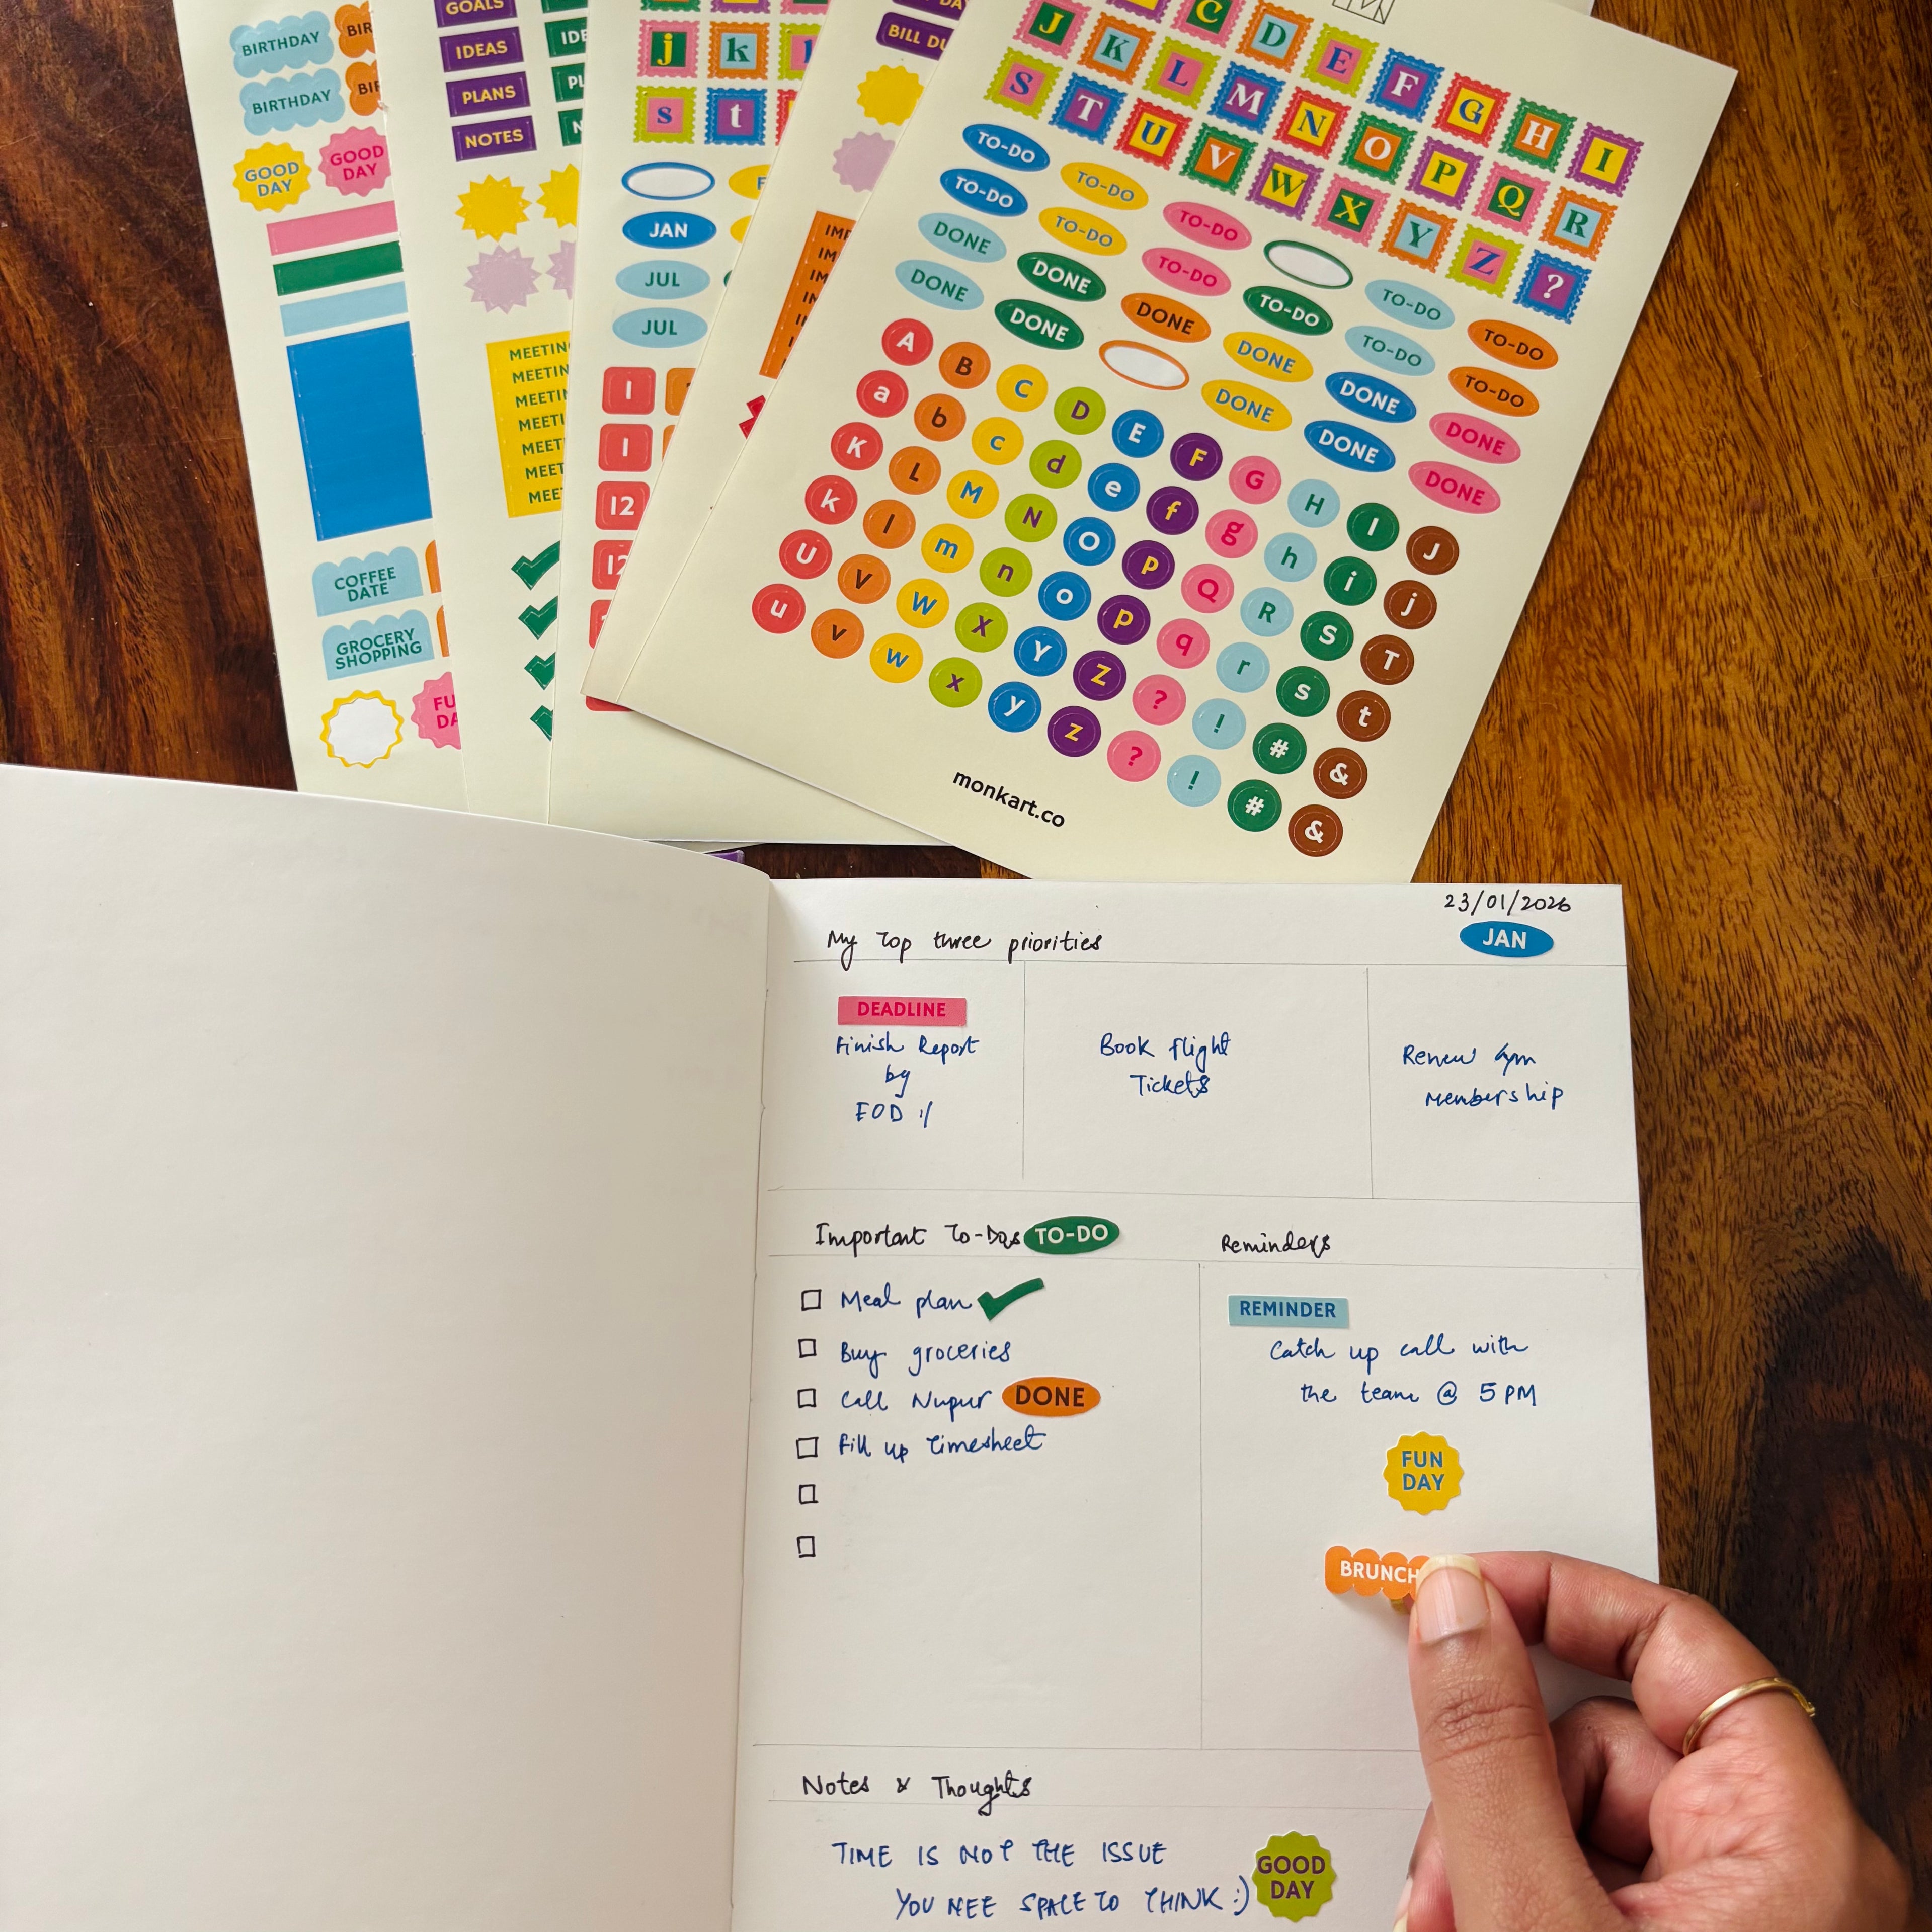 BIRTHDAY
BIRTHDAY
GOOD DAY
GOOD DAY
COFFEE DATE
GROCERY SHOPPING
GOALS
IDEAS
PLANS
NOTES
j k
s t
JAN
JUL
JUL
1
1
12
BILL
C D E F G H I
J K L M N O P Q R
S T U V W X Y Z ?
TO-DO TO-DO TO-DO TO-DO TO-DO
TO-DO TO-DO TO-DO TO-DO TO-DO TO-DO
DONE DONE DONE DONE DONE DONE
DONE DONE DONE DONE DONE
A B C D E F G H I J
a b c d e f g h i j
K L M N O P Q R S T
k l m n o p q r s t
U V W X Y Z ? ! # &
u v w x y z ? ! # &
monkart.co
23/01/2026
JAN
My Top three priorities
DEADLINE
Finish Report
by
EOD :/
Book flight
Tickets
Renew Gym
Membership
Important To-Dos TO-DO
Meal plan
Buy groceries
Call Nupur DONE
Fill up timesheet
Reminders
REMINDER
Catch up call with
the team @ 5 PM
FUN
DAY
BRUNCH
Notes & Thoughts
TIME IS NOT THE ISSUE
YOU NEE SPACE TO THINK :)
GOOD
DAY